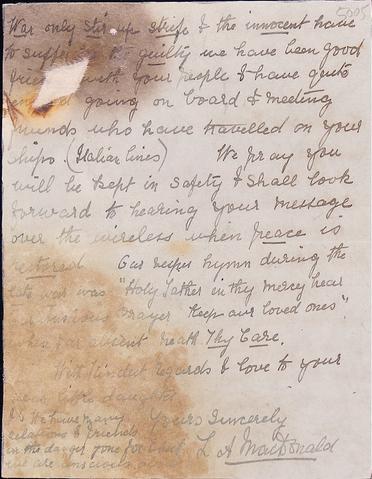 5005
War only stir up strife & the innocent have
to suffer the guilty we have been good
with your people & have quite
going on board & meeting
who have travelled on your
ships (Italian lines) We pray you
will be kept in safety & shall look
forward to hearing your message
over the wireless when peace is
restored Our vesper hymn during the
late war was "Holy Father in thy mercy hear
our anxious prayer Keep our loved ones"
when far absent neath Thy Care.
With kindest regards & love to your
Yours Sincerely
L A MacDonald
P.S We have many
relations & friends
in the danger zone
we are